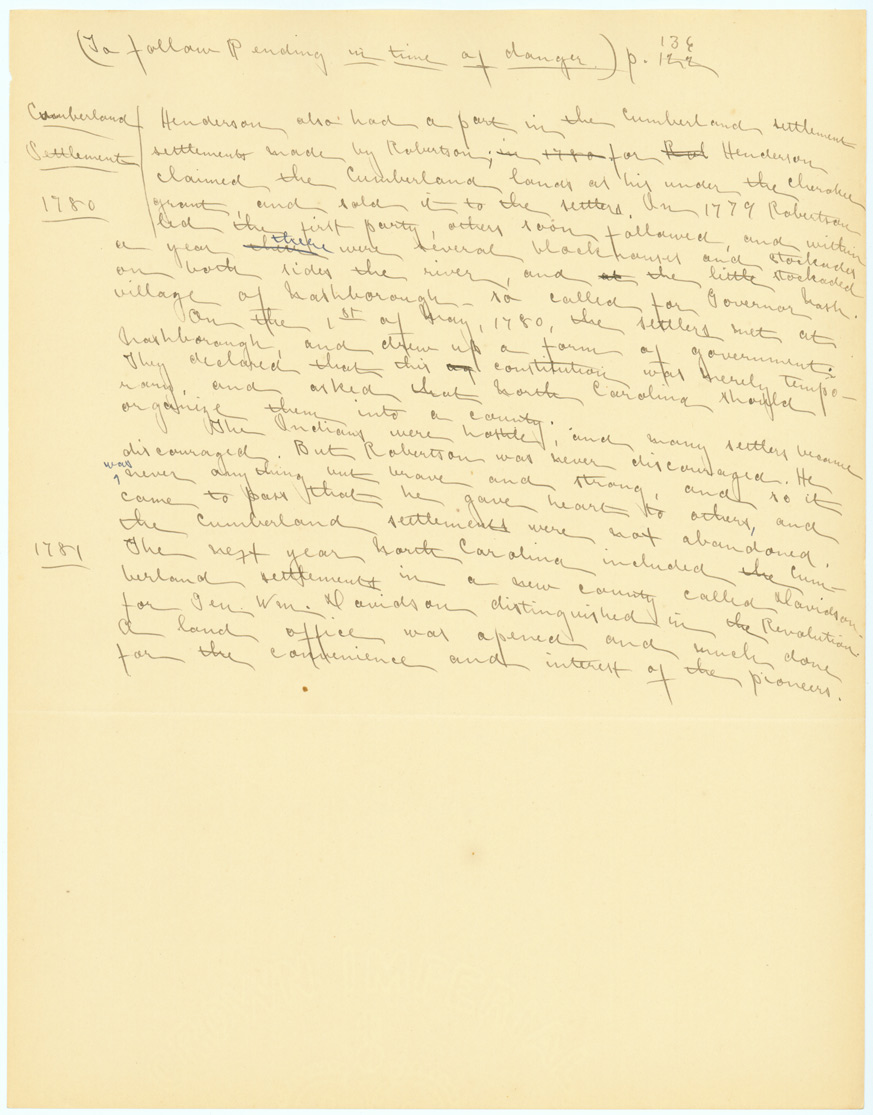 (To follow P ending in time of danger.) p. 136
122
Cumberland
Settlement
1780
Henderson also had a part in the Cumberland settlement
settlements made by Robertson; in 1780 for Henderson
claimed the Cumberland lands as his under the Cherokee
grant, and sold it to the settlers. In 1779 Robertson
led the first party, others soon followed, and within
a year there were several blockhouses and stockades
on both sides the river, and at the little stockaded
village of Nashborough – so called for Governor Nash.
On the 1st of May, 1780, the settlers met at
Nashborough, and drew up a form of government.
They declared that this as constitution was merely tempo-
rary, and asked that North Carolina should
organize them into a county.
The Indians were hostile, and many settlers became
discouraged. But Robertson was never discouraged. He
was never any thing but brave and strong, and so it
came to pass that he gave heart to others, and
the Cumberland settlements were not abandoned.
1781
The next year North Carolina included the Cum-
berland settlements in a new county called Davidson
for Gen. Wm. Davidson distinguished in the Revolution.
A land office was opened and much done
for the convenience and interest of the pioneers.